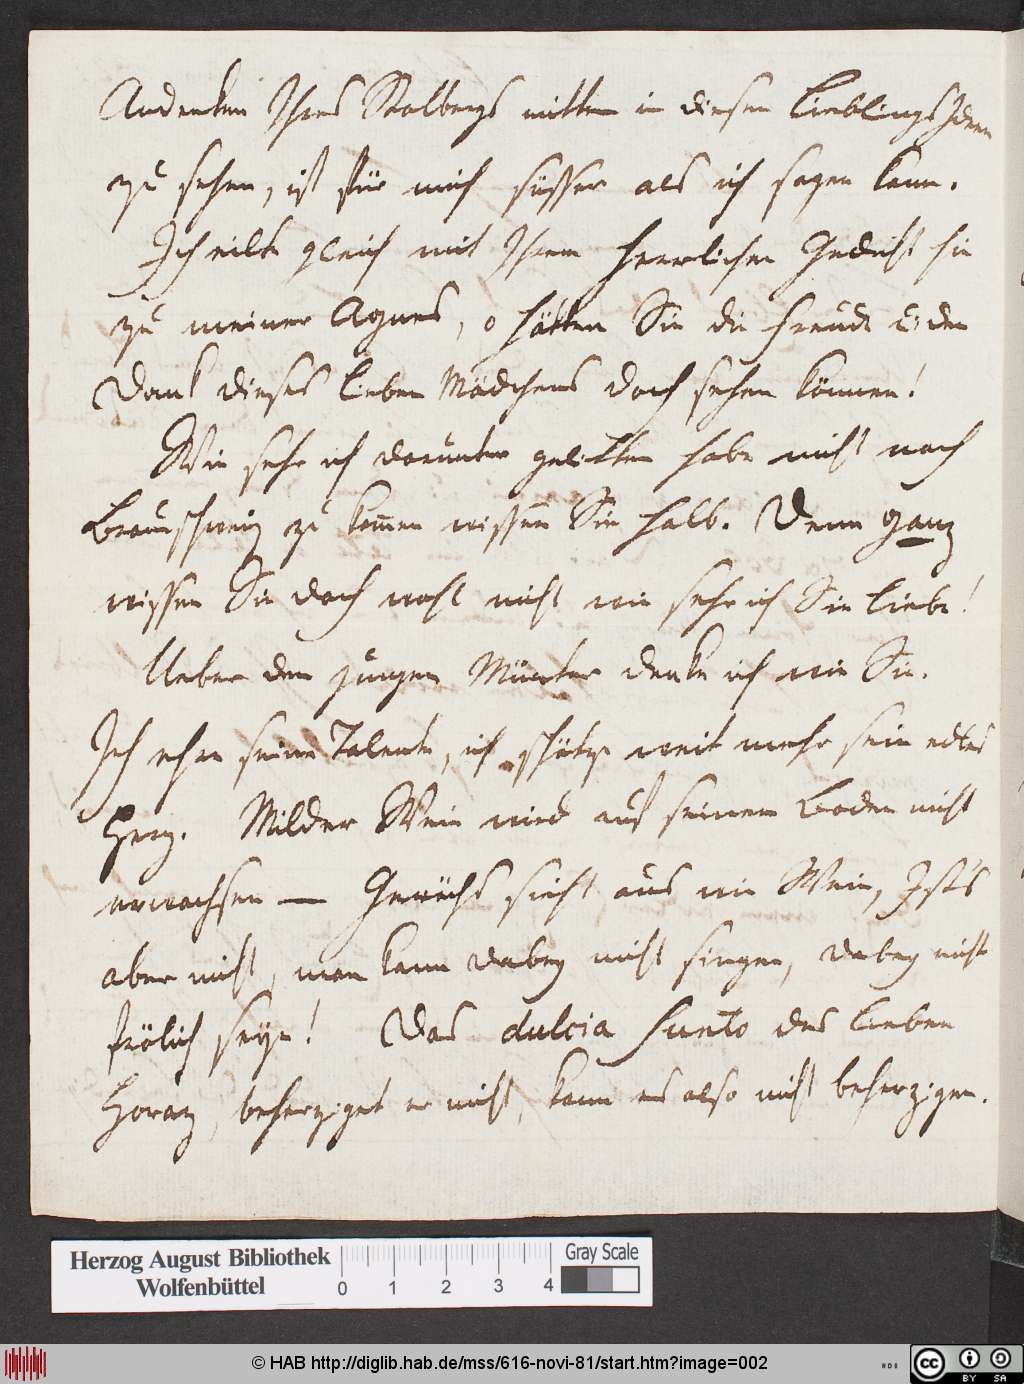 Andenken Ihres Stolbergs mitten in diesen LieblingsIdeen
zu sehen, ist für mich süsser als ich sagen kann.
Ich eilte gleich mit Ihrem herrlichen Gedicht hin
zu meiner Agnes, o hätten Sie die Freude u: den
Dank dieses lieben Mädchens doch sehen können!
Wie sehr ich darunter gelitten habe nicht nach
Braunschweig zu kom̅en wissen Sie halb. Denn ganz
wissen Sie doch wohl nicht wie sehr ich Sie liebe!
Ueber den jungen Münter denke ich wie Sie.
Ich ehre seine Talente, ich schätze weit mehr sein edles
Herz. Milder Wein wird auf seinem Boden nicht
erwachsen — Gewächs sieht aus wie Wein, Ist's
aber nicht, man kann dabey nicht singen, dabey nicht
frölich seyn! Das dulcia furto des lieben
Horaz, beherziget er nicht, kann es also nicht beherzigen.
Herzog August Bibliothek
Wolfenbüttel
0 1 2 3 4
Gray Scale
© HAB http://diglib.hab.de/mss/616-novi-81/start.htm?image=002
cc BY SA